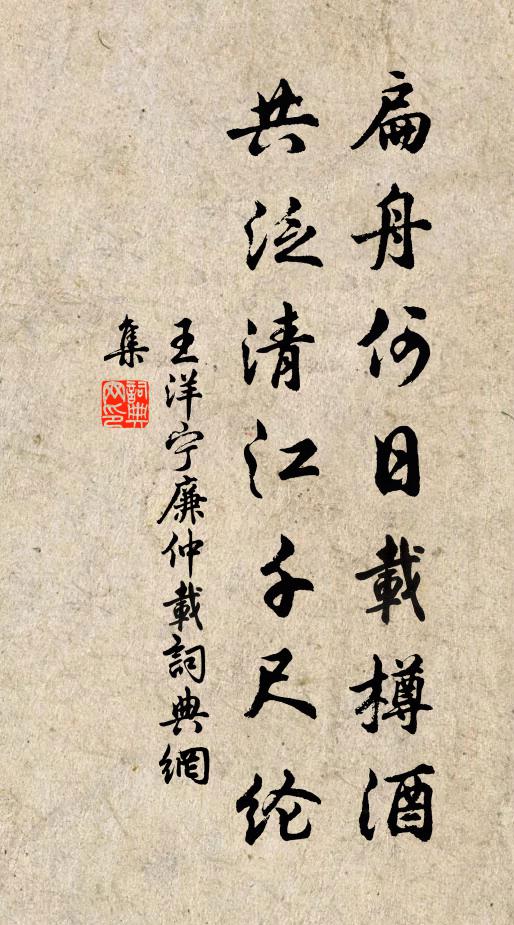 扁舟何日載樽酒
共泛清江千尺纶
王洋宁廉仲載詞典網
集
詞典网印